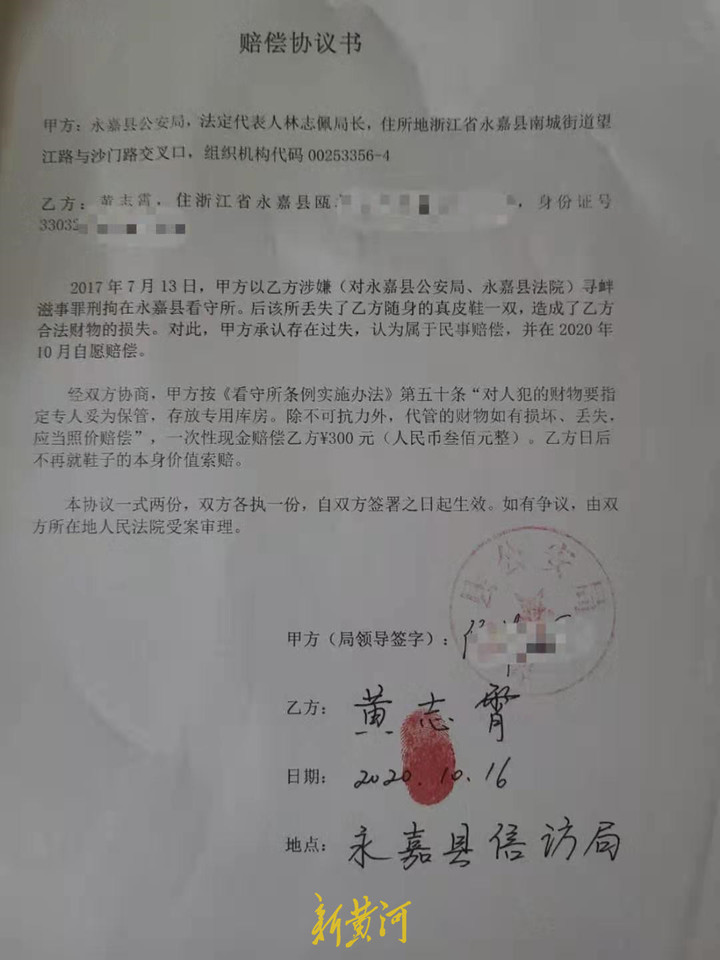 赔偿协议书
甲方：永嘉县公安局，法定代表人林志佩局长，住所地浙江省永嘉县南城街道望
江路与沙门路交叉口，组织机构代码 00253356-4
乙方：黄志霄，住浙江省永嘉县瓯 ，身份证号
33032
2017 年 7 月 13 日，甲方以乙方涉嫌（对永嘉县公安局、永嘉县法院）寻衅
滋事罪刑拘在永嘉县看守所。后该所丢失了乙方随身的真皮鞋一双，造成了乙方
合法财物的损失。对此，甲方承认存在过失，认为属于民事赔偿，并在 2020 年
10 月自愿赔偿。
经双方协商，甲方按《看守所条例实施办法》第五十条“对人犯的财物要指
定专人妥为保管，存放专用库房。除不可抗力外，代管的财物如有损坏、丢失，
应当照价赔偿”，一次性现金赔偿乙方¥300 元（人民币叁佰元整）。乙方日后
不再就鞋子的本身价值索赔。
本协议一式两份，双方各执一份，自双方签署之日起生效。如有争议，由双
方所在地人民法院受案审理。
县公安局
甲方（局领导签字）：
乙方： 黄志霄
日期： 2020.10.16
地点： 永嘉县信访局
新黄河